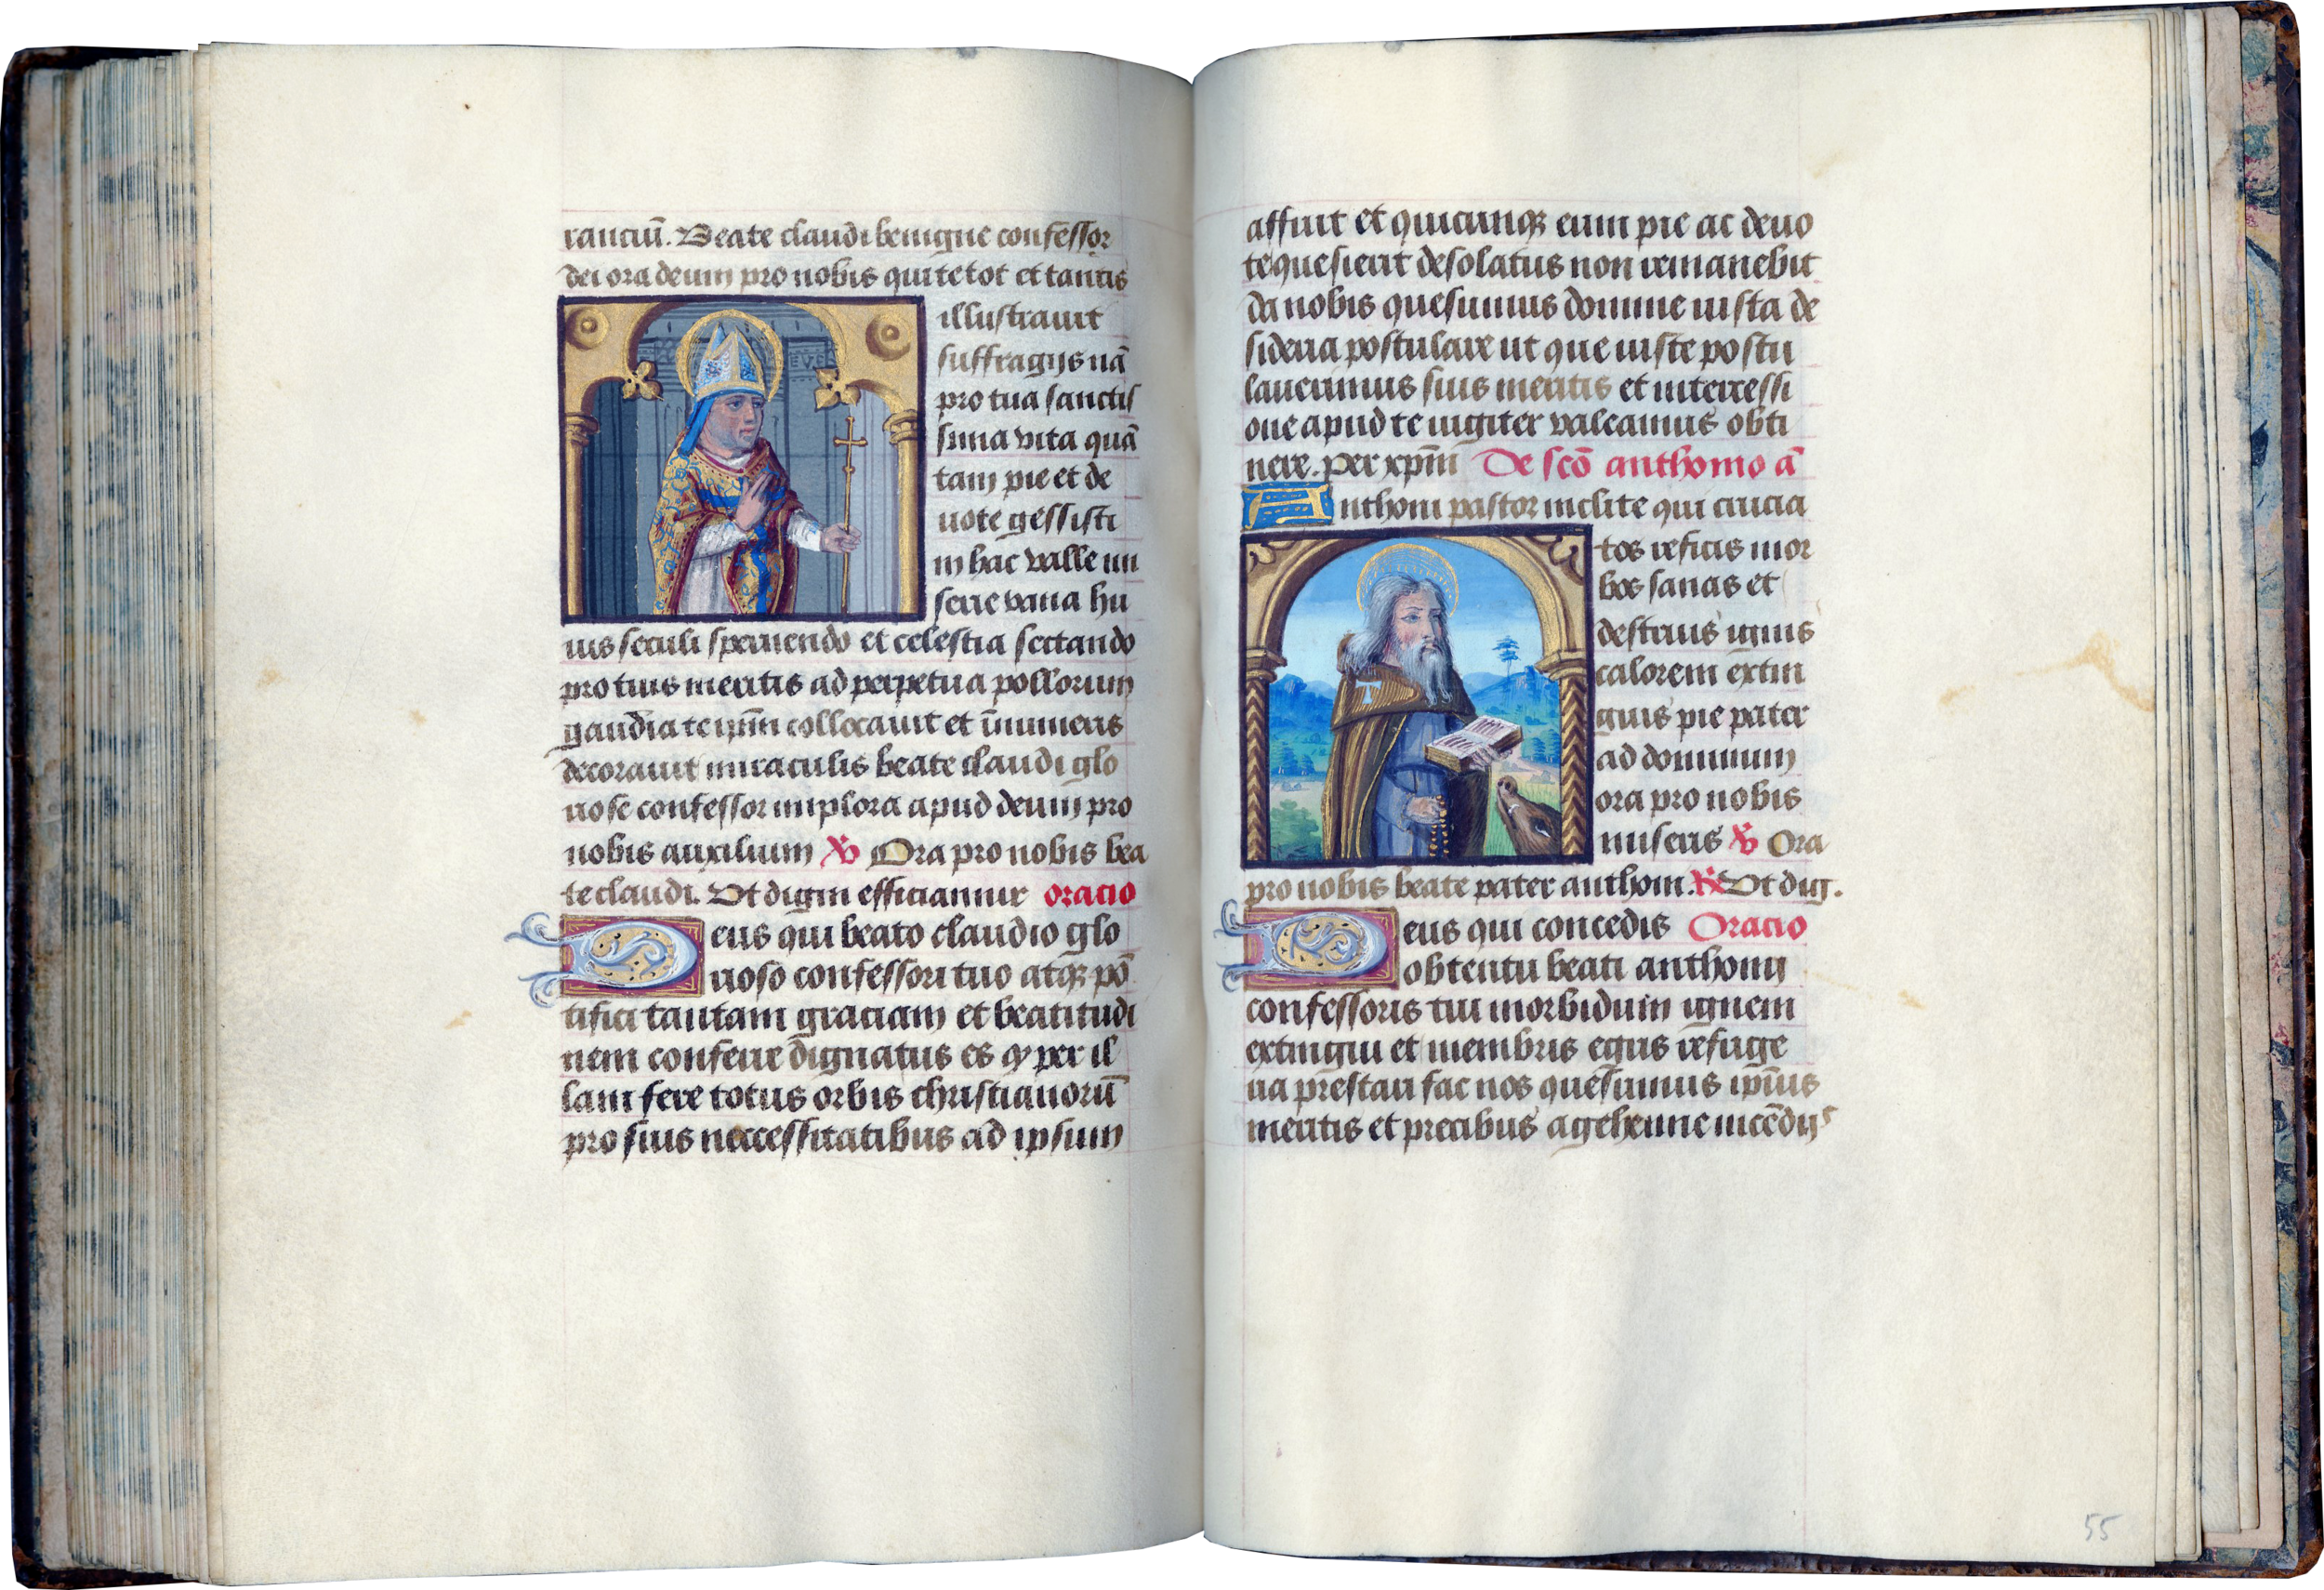 rauciū. Beate claudi benigne confessor
dei ora deum pro nobis qui te tot et tantis
illustrauit
suffragijs nā
pro tua sanctis
sima vita quā
tam pie et de
uote gessisti
in hac valle mi
serie vana hu
ius seculi spernendo et celestia sectando
pro tuis meritis ad perpetua pollorum
gaudia te ip̄m collocauit et īnumeris
decorauit miraculis beate claudi glo
riose confessor implora apud deum pro
nobis auxilium ℣ Ora pro nobis bea
te claudi. Vt digni efficiamur oracio
Deus qui beato claudio glo
rioso confessori tuo atqꝫ pō
tifici tantam graciam et beatitudi
nem conferre dignatus es ꝙ per il
lam fere totus orbis christianorū
pro suis neccessitatibus ad ipsum
affuit et quicunqꝫ eum pie ac deuo
te quesierit desolatus non remanebit
da nobis quesumus domine iusta de
sideria postulare ut que iuste postu
lauerimus suis meritis et intercessi
one apud te iugiter valeamus obti
nere. per xp̄m De scō anthonio ā
Anthoni pastor inclite qui crucia
tos reficis mor
bos sanas et
destruis ignis
calorem extin
guis pie pater
ad dominum
ora pro nobis
miseris ℣ Ora
pro nobis beate pater anthoni. ℟ Vt dig.
Deus qui concedis Oracio
obtentu beati anthonij
confessoris tui morbidum ignem
extingui et membris egris refrige
ria prestari fac nos quesumus ip̄ius
meritis et precibus a gehenne incēdijs
55